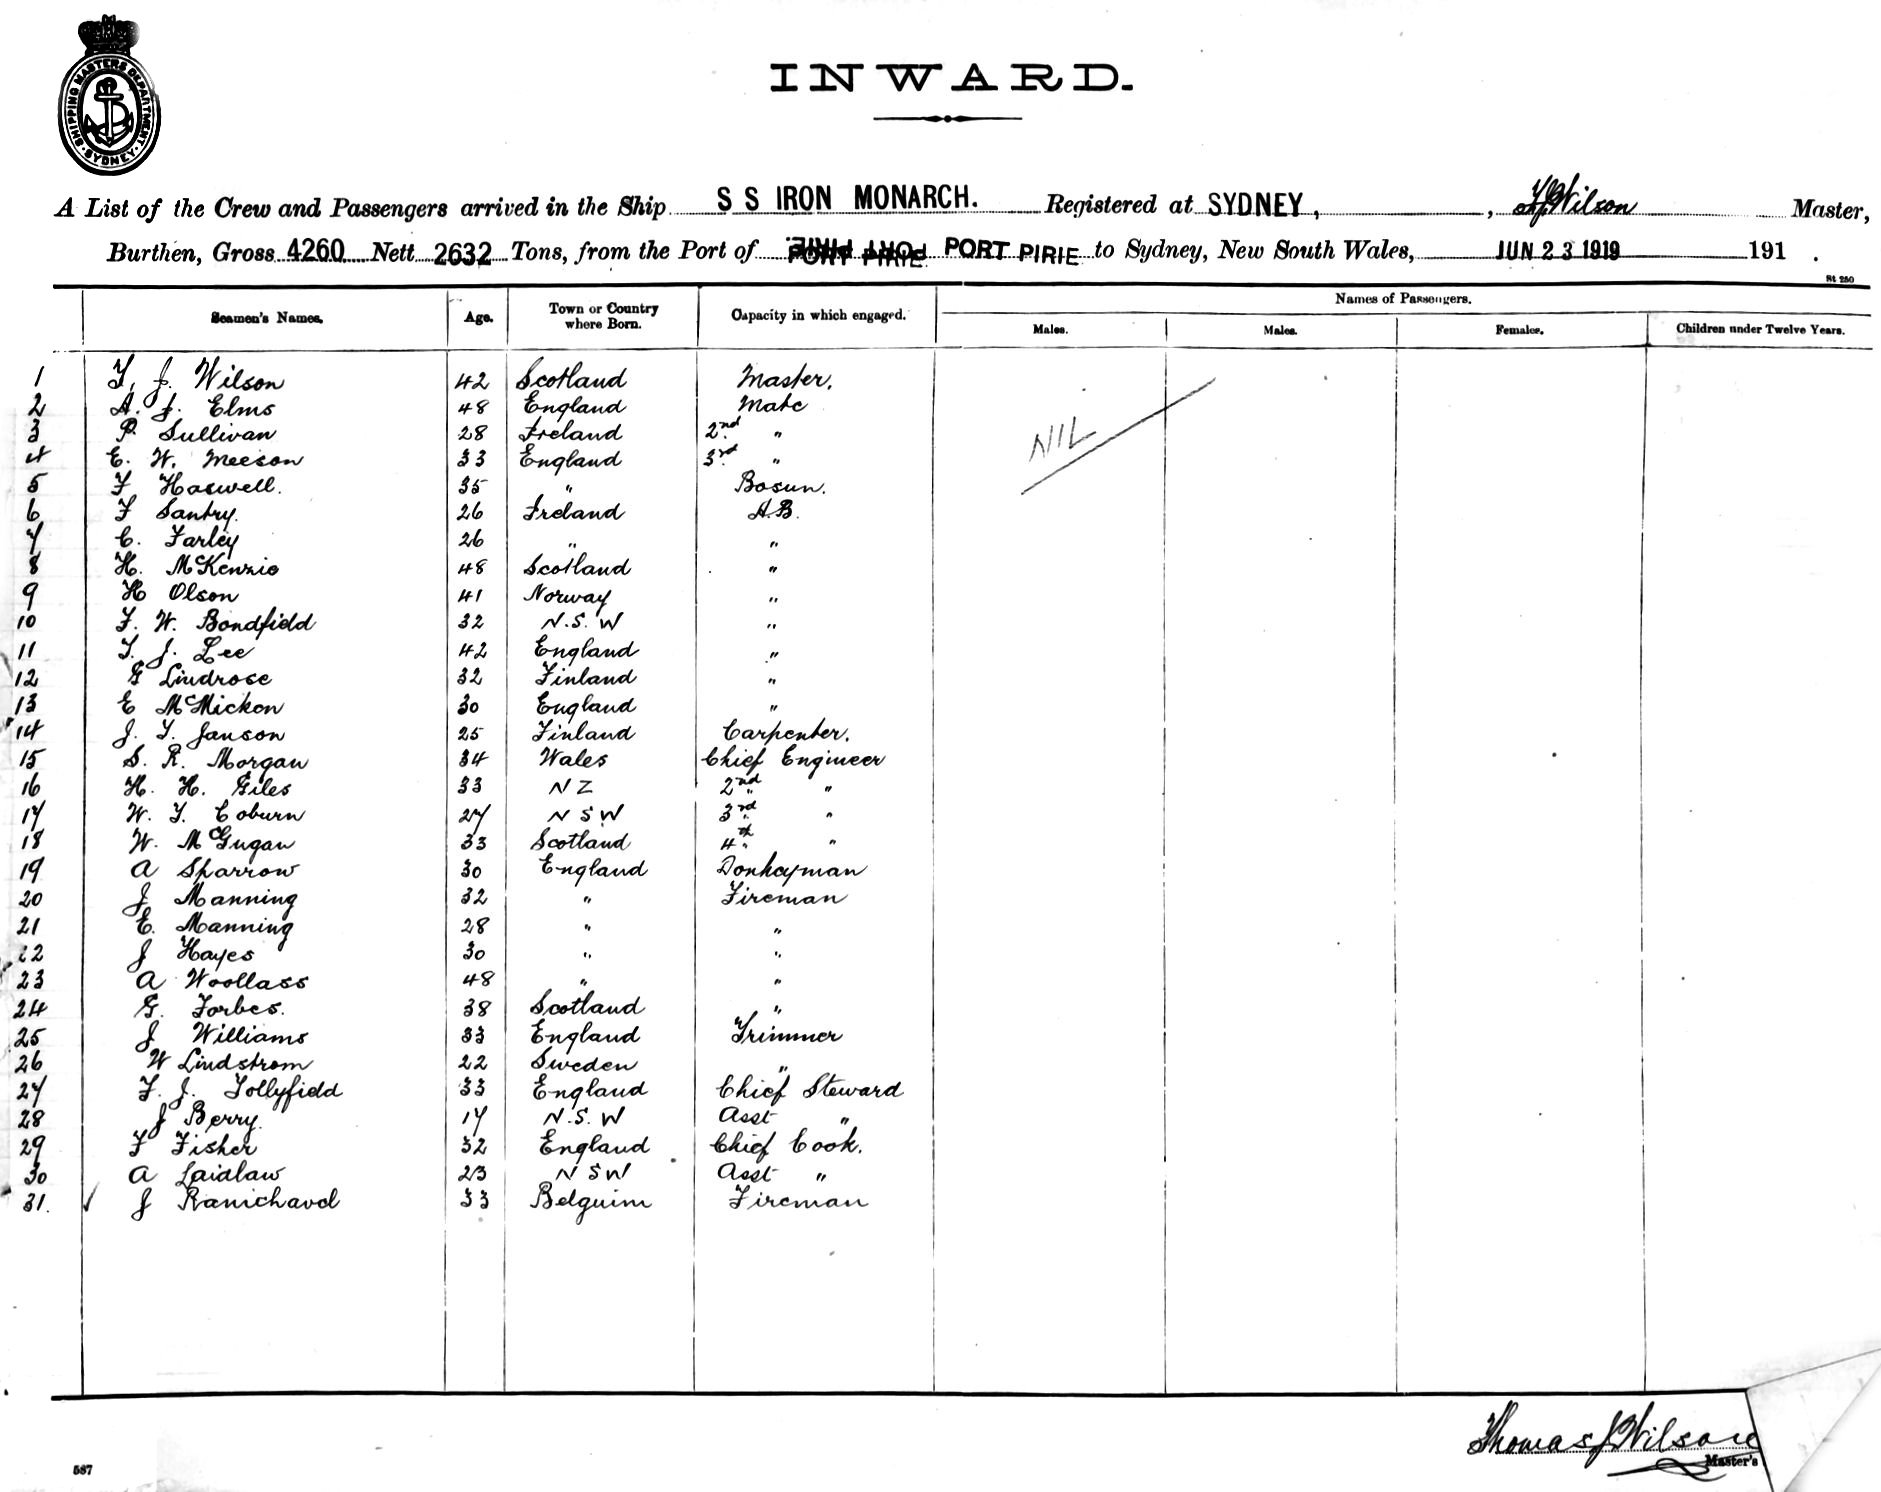 SHIPPING MASTERS DEPARTMENT SYDNEY
INWARD.
A List of the Crew and Passengers arrived in the Ship S S IRON MONARCH. Registered at SYDNEY, , T J Wilson Master,
Burthen, Gross 4260 Nett 2632 Tons, from the Port of PORT PIRIE PORT PIRIE to Sydney, New South Wales, JUN 23 1919 191 .
St 250
Seamen's Names. Age. Town or Country where Born. Capacity in which engaged. Names of Passengers.
Males. Males. Females. Children under Twelve Years.
1 T. J. Wilson 42 Scotland Master.
2 A. J. Elms 48 England Mate
3 P. Sullivan 28 Ireland 2nd "
4 E. W. Meeson 33 England 3rd "
NIL
5 F Haswell. 35 " Bosun.
6 F Santry. 26 Ireland A.B.
7 C. Farley 26 " "
8 H. McKenzie 48 Scotland "
9 H Olson 41 Norway "
10 F. W. Bondfield 32 N.S.W "
11 T. J. Lee 42 England "
12 G Lindrose 32 Finland "
13 E McMicken 30 England "
14 J. F. Janson 25 Finland Carpenter.
15 S. R. Morgan 34 Wales Chief Engineer
16 H. H. Giles 33 N Z 2nd " "
17 W. T. Coburn 27 N S W 3rd " "
18 W. McGugan 33 Scotland 4th " "
19 A Sparrow 30 England Donkeyman
20 J Manning 32 " Fireman
21 E. Manning 28 " "
22 J Hayes 30 " "
23 A Woollass 48 " "
24 G. Forbes. 38 Scotland "
25 J Williams 33 England Trimmer
26 W Lindstrom 22 Sweden "
27 F. J. Jollyfield 33 England Chief Steward
28 J Berry. 17 N.S.W Asst "
29 F Fisher 32 England Chief Cook.
30 A Laidlaw 23 N S W Asst "
31. ✓ J Ranichavd 33 Belguim Fireman
Thomas J Wilson
Master's
587